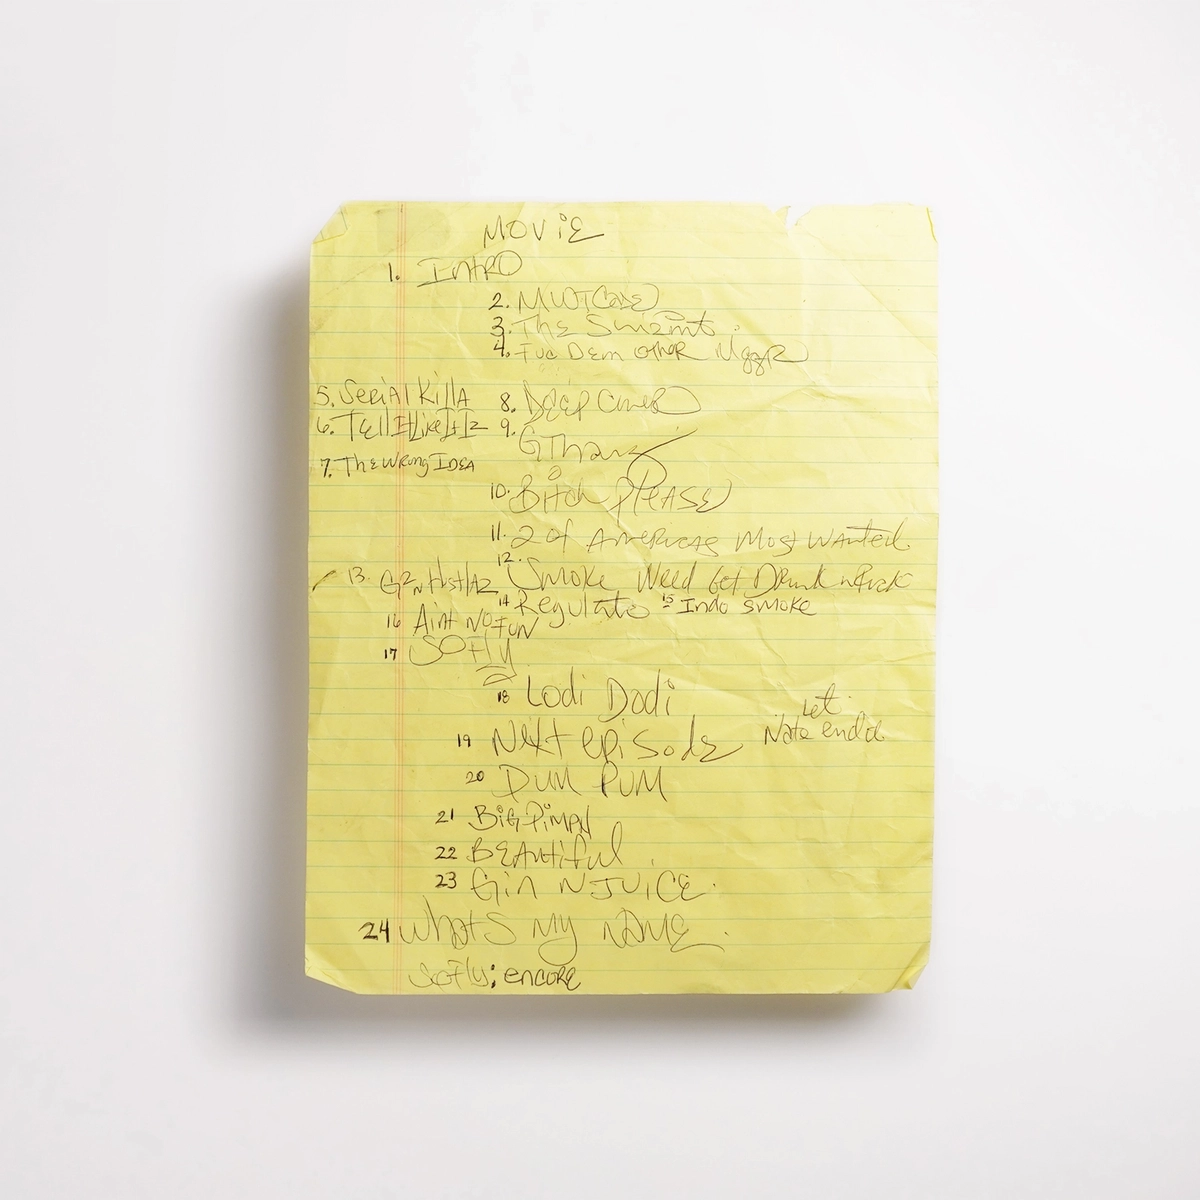 MOViE
1. INtRO
2. MWTCASE
3. THE
4. Fuc DEm OtHER NiggR
5. SERiAl KillA
6. TEllItLikeItIz
7. THE WRONG IDEA
8. DEEP COVER
9. GThang
10. Bitch PlEASE
11. 2 of AmERicas Most WANtEd.
12. Smoke Weed Get Drunk nFuck
13. G'z N HustlAz
14 Regulate 15 Indo smoke
16 Aint NO FUN
17 SO Fly
18 Lodi Dodi
Let
Nate end it
19 NExt episodE
20 DUM DUM
21 BiG PiMPN
22 BEAutiful.
23 Gin N JUiCE.
24 WhatS My NAME.
SoFly; encore